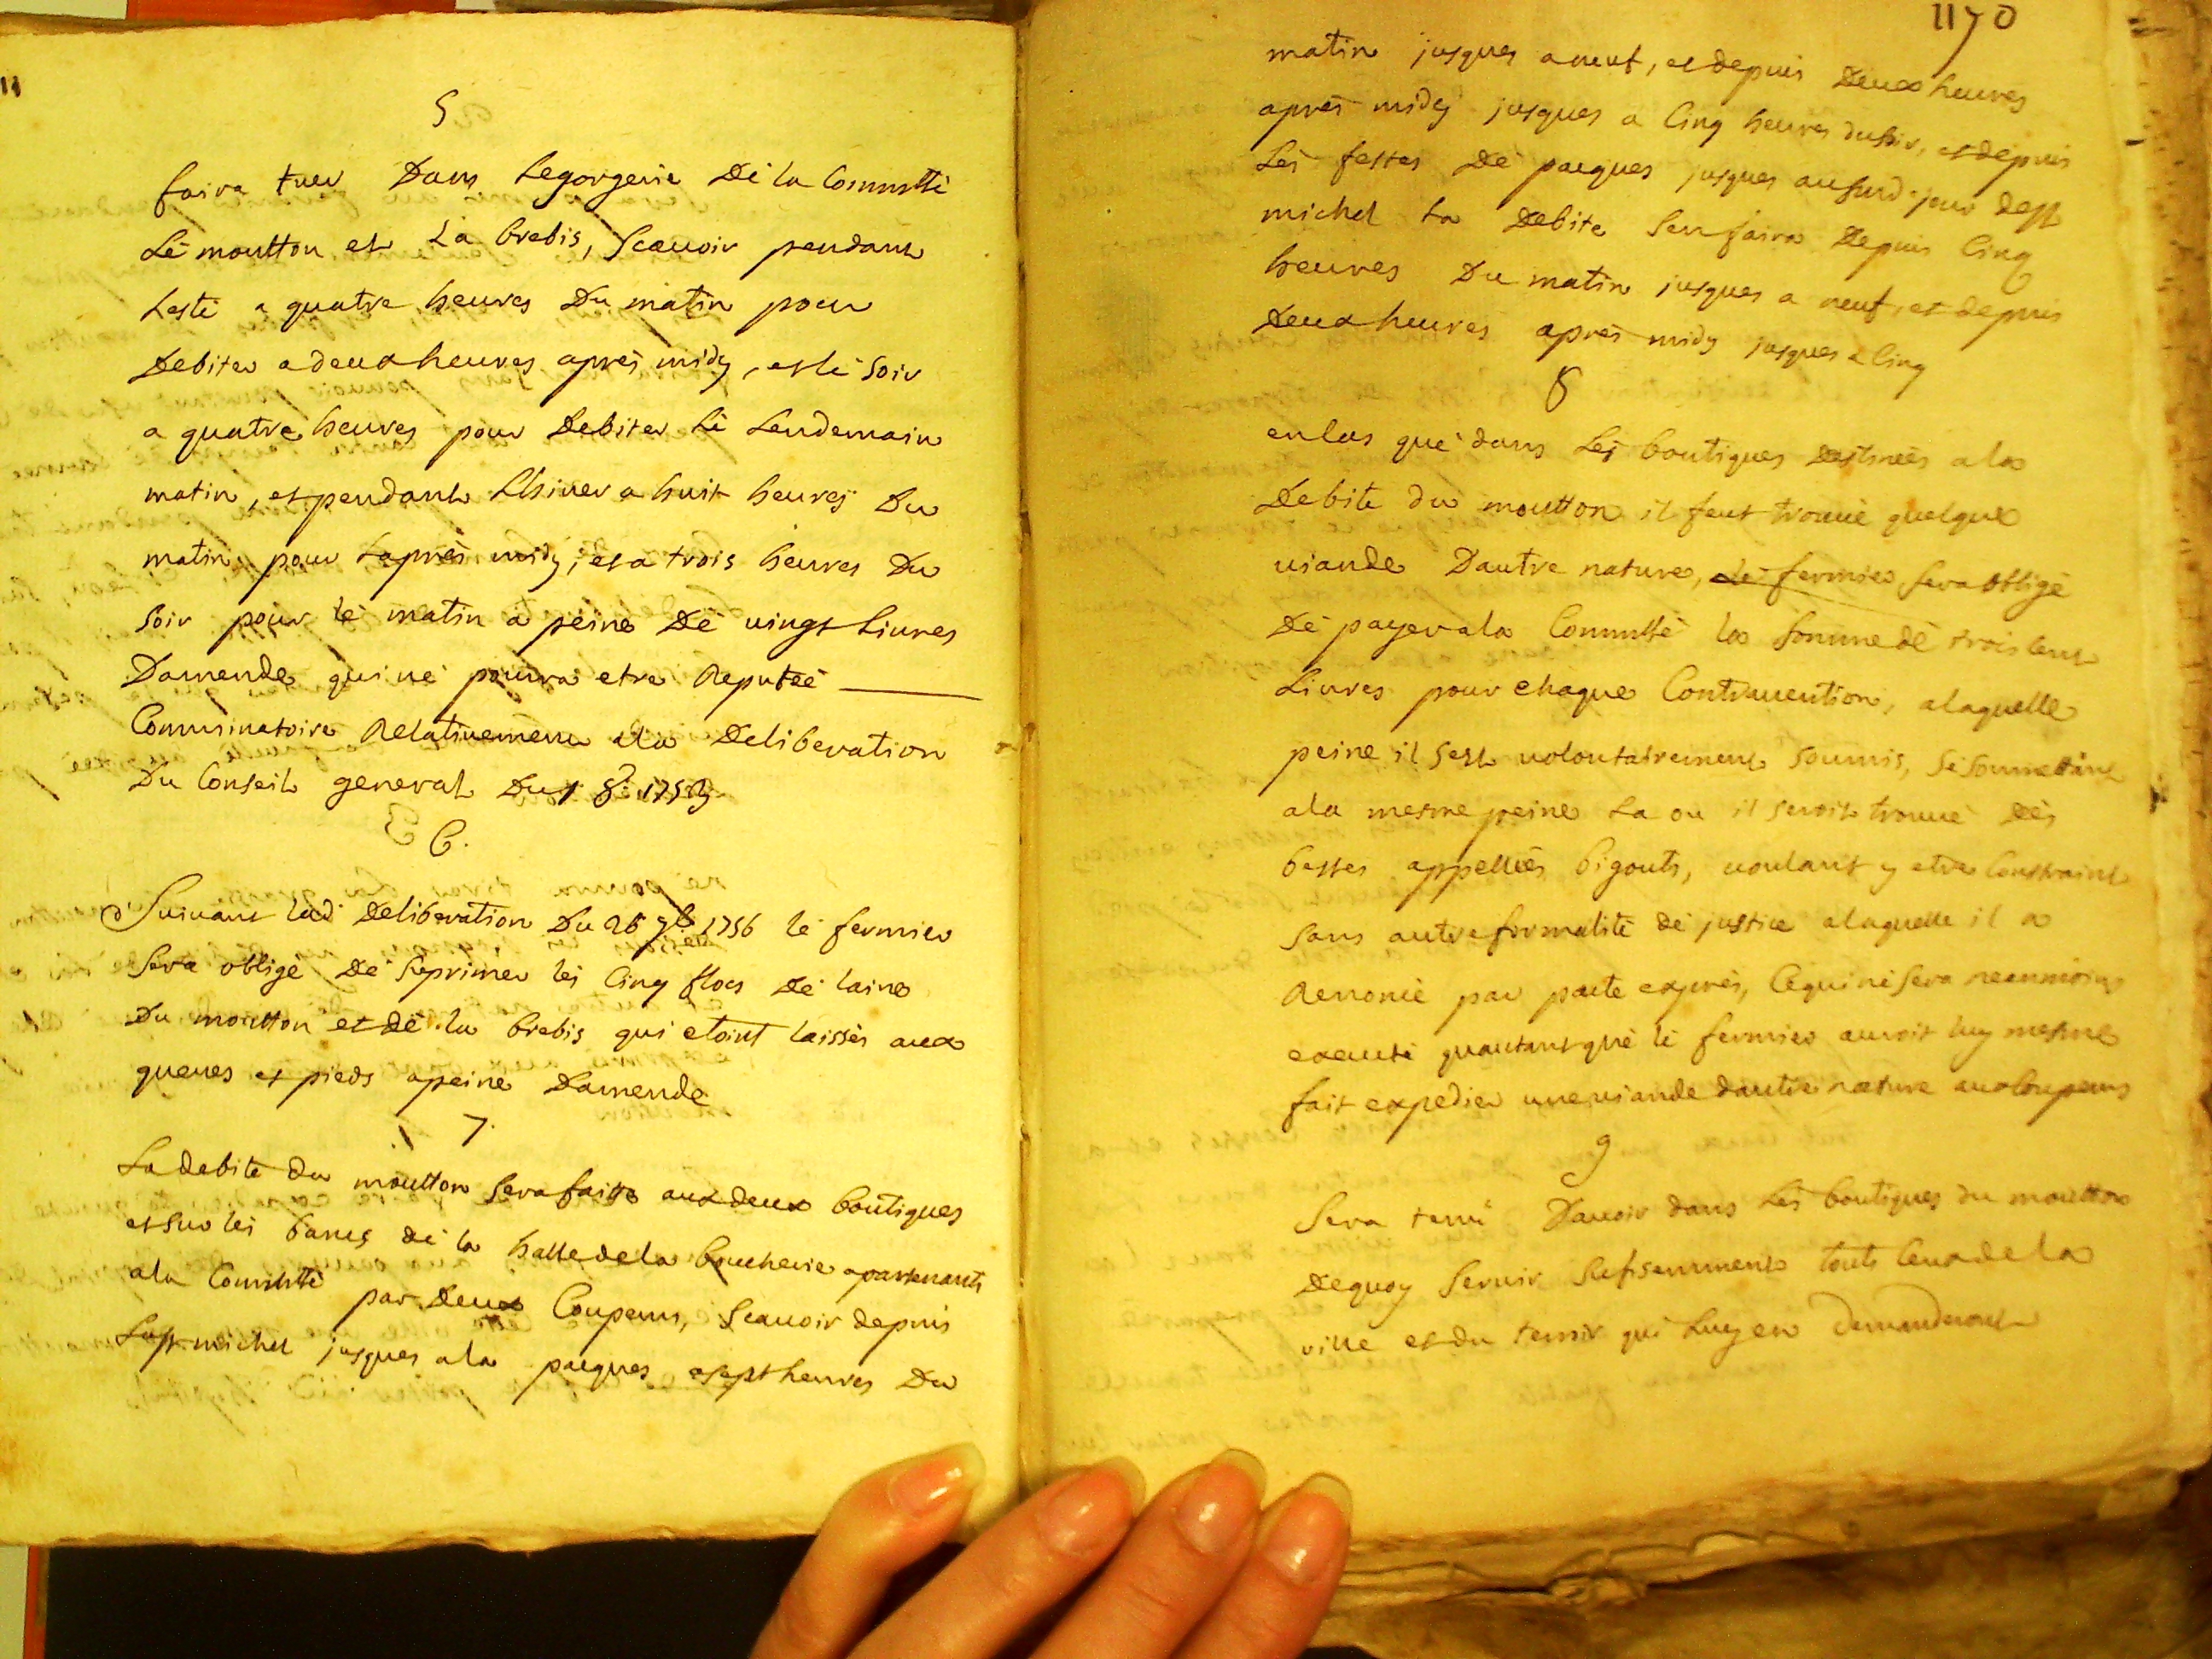 5
faira tuer Dans Legorgerie De la Commtté
Lé moutton et La brebis, Scauoir pendant
Lesté a quatre heures Du matin pour
Debiter a deux heures aprés midy, et lé Soir
a quatre heures pour Debiter Lé Lendemain
matin, et pendant Lhiuer a huit heures Du
matin pour Laprés midy, et a trois heures Du
Soir pour lé matin a peine Dé uingt Liures
Damende qui né pourra etre Reputéé
Comminatoire Relatiuement ala Deliberation
Du Conseil general Du
6.
Suiuant lad. Deliberation Du 26 7b 1756 lé fermier
Sera obligé Dé Suprimer lés Cinq flocs Dé laine
Du moutton et dé la brebis qui etoint laissés aux
queues et pieds apeine Damende
7.
La debite du moutton Sera faitte aux deux boutiques
et sur lés bancs dé la halle de la boucherie apartenants
ala Commtté par Deux Coupeurs, Scauoir depuis
La St michel jusques ala paques a sept heures Du
1170
matin jusques a neuf, et depuis Deux heures
aprés midy jusques a Cinq heures du soir, et depuis
Lés festes Dé paques jusques au surd. jour de St
michel La Debite Sen faira Depuis Cinq
heures Du matin jusques a neuf, et depuis
Deux heures aprés midy jusques a Cinq
8
en Cas qué dans Lés boutiques Destinéés ala
Debite du moutton il feut trouué quelque
uiande Dautre nature, Lé fermier Sera obligé
Dé payer ala Commtté la Somme dé trois Cent
Liures pour chaque Contrauention, a laquelle
peine il Sest uolontairement Soumis, Sé Soumettant
ala mesme peine La ou il Seroit trouué Dés
bestes appellées bigouts, uoulant y etre Constraint
Sans autre formalité dé justice a laquelle il a
Renoncé par pacte exprés, Cé qui né Sera neanmoins
executé quautant qué lé fermier auroit luy mesme
fait expedier une uiande dautre nature aux Coupeurs
9
Sera tenu Dauoir dans Lés boutiques du moutton
Dequoy Seruir Sufisenment touts Ceux de la
uille et du terroir qui Luy en Demanderont